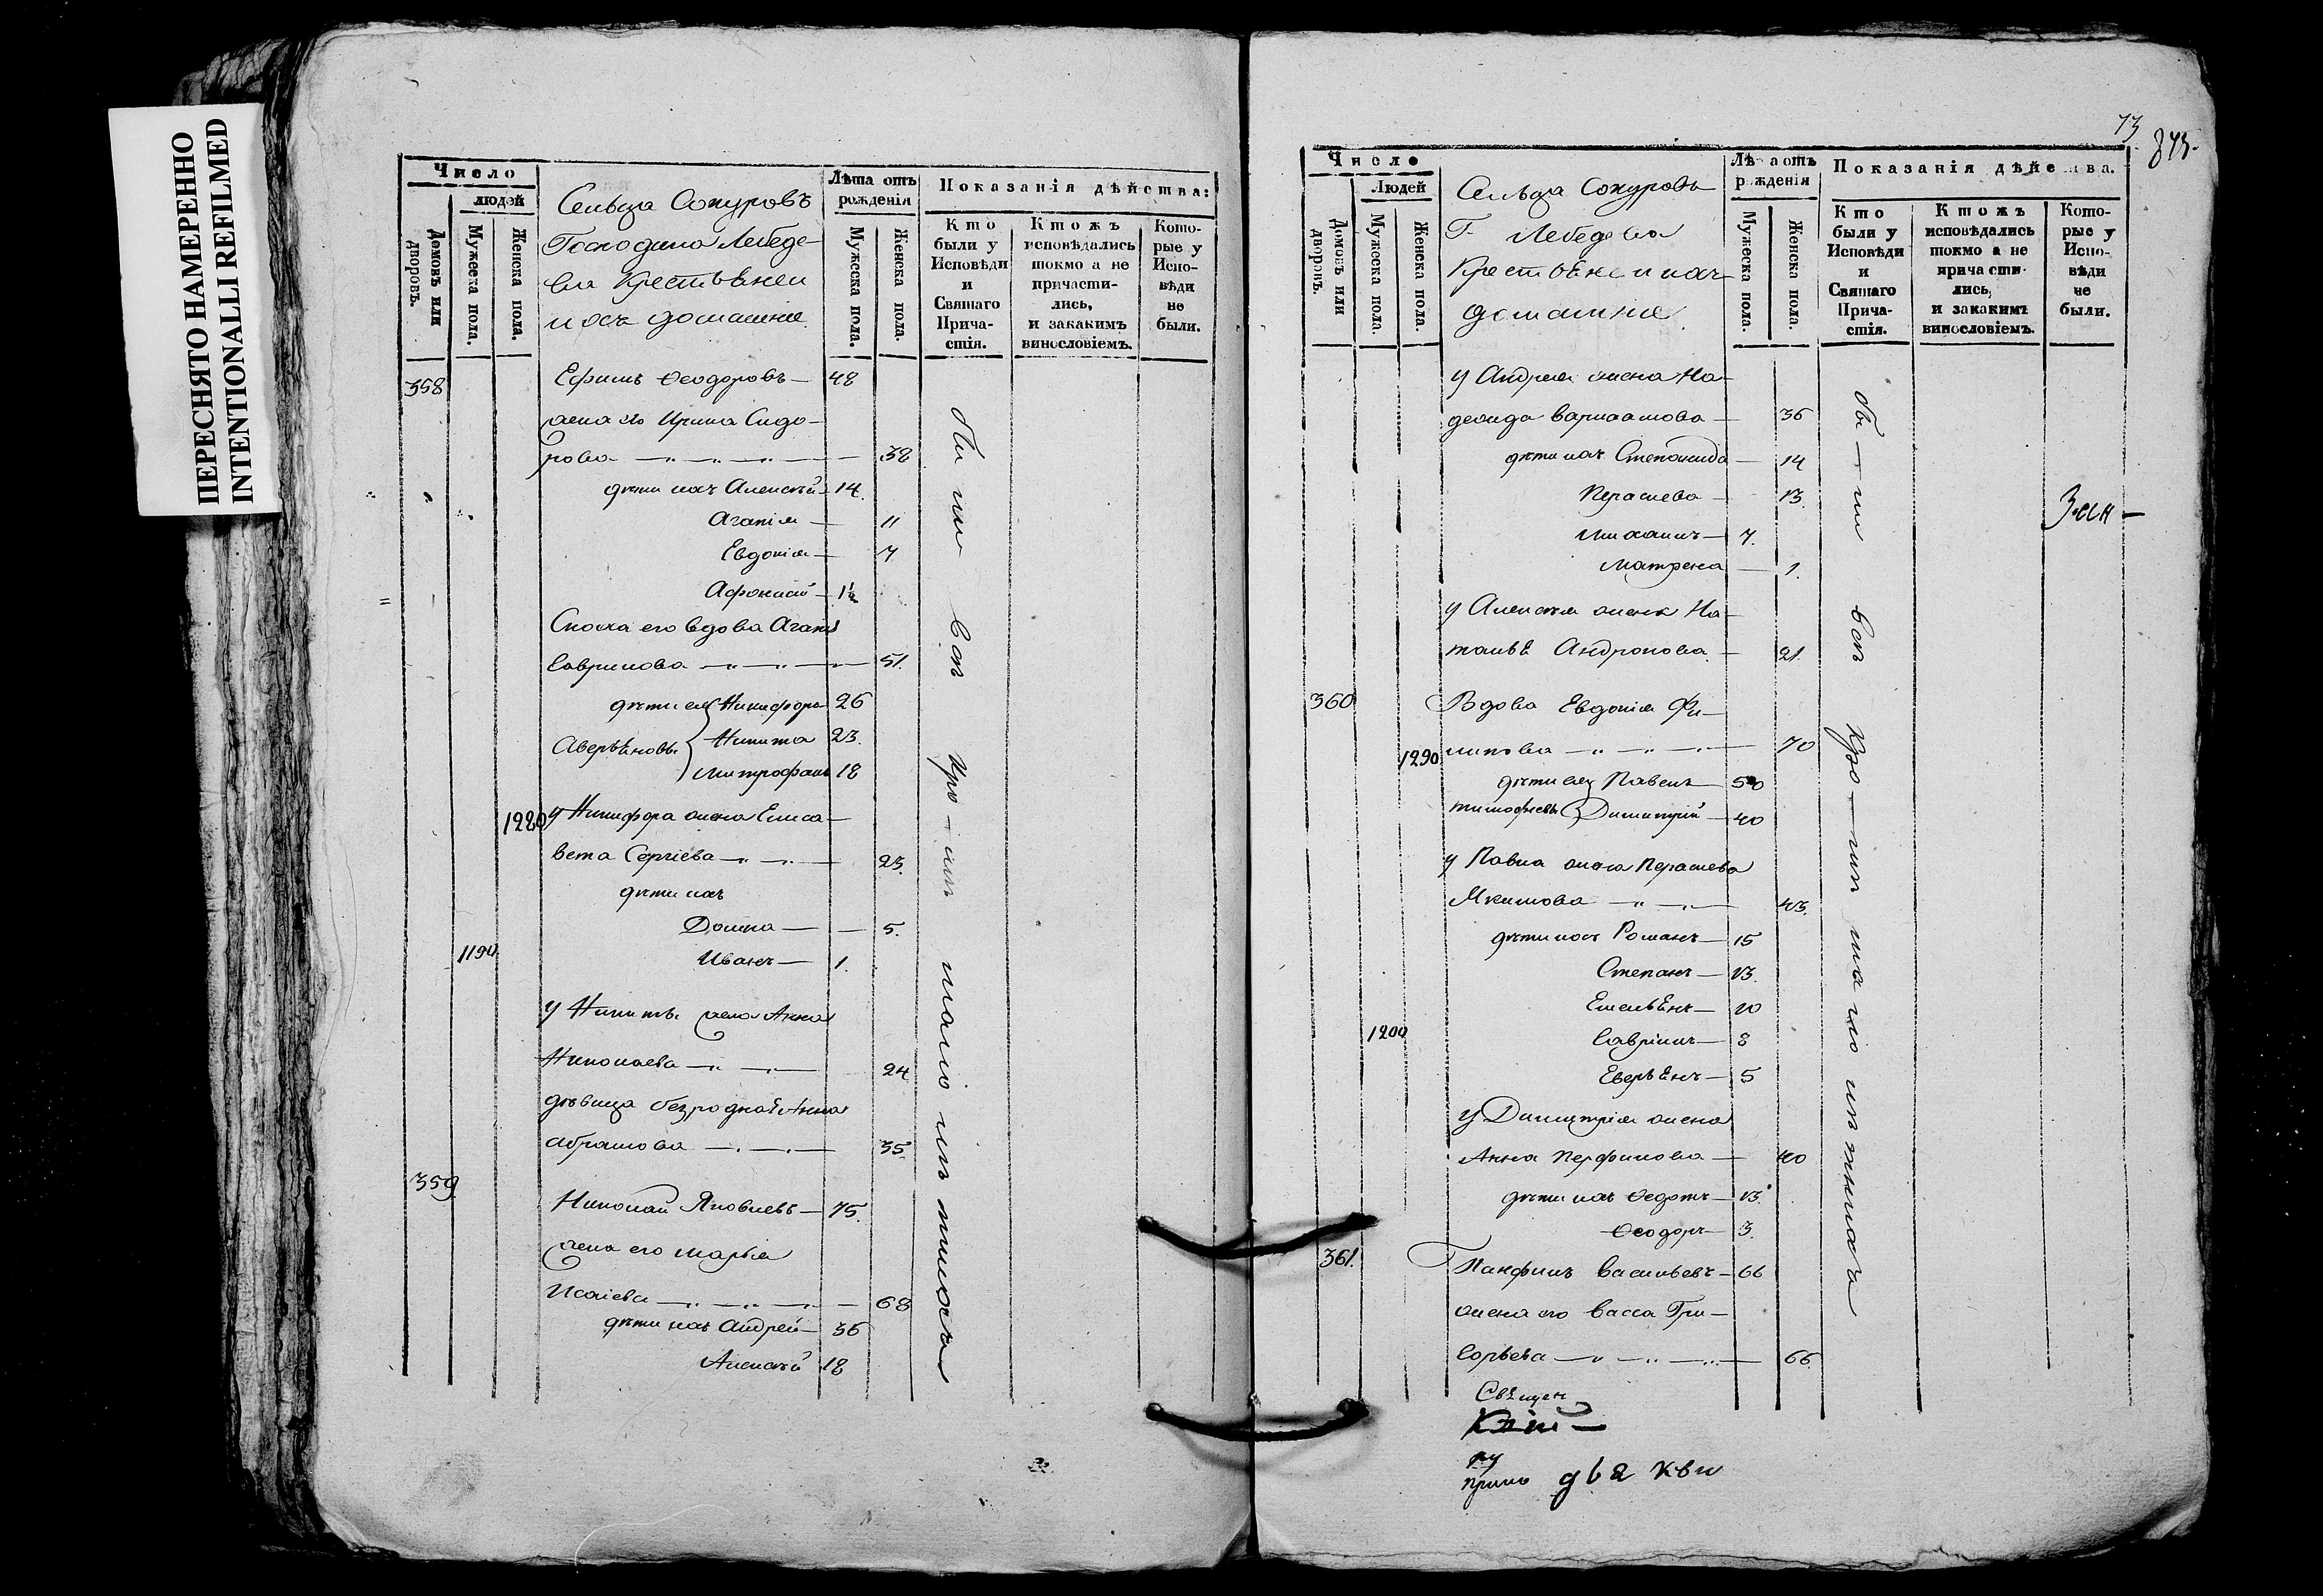 ПЕРЕСНЯТО НАМЕРЕННО
INTENTIONALLI REFILMED
Число
людей
Домовъ или дворовъ.
Мужеска пола.
Женска пола.
Сельца
Господина Лебеде-
ва Крестьянеи
ихъ домашние
Лѣта отъ рожденія
Мужеска пола.
Женска пола.
Показанія дѣйства:
Кто были у Исповѣди и Святаго Прича-стія.
Ктожъ исповѣдались токмо а не причасти-лись, и закакимъ винословіемъ.
Кото-рые у Испо-вѣди не были.
358
Ефимъ Ѳеодоровъ — 48
жена его Ирина Сидо-
рова — 38
дѣти ихъ Алексѣй — 14.
Агапіа — 11
Евдокіа — 7
Афонасій — 1½
Сноха его вдова Агапіа
Гаврилова — 51.
дѣти ея Никифоръ 26
Аверьѣновы Никита 23.
Митрофанъ 18
1280 у Никифора жена Елиса-
вета Сергіева — 23.
дѣти ихъ
Домна — 5.
1194 Иванъ — 1.
у Никиты жена Анна
Николаева — 24
дѣвица безроднаѣ Анна
Абрамова — 35
359.
Николай Яковлевъ — 75.
жена его Марьа
Исаіева — 68
дѣти ихъ Андрей — 36
Алексѣй 18
бы ли всѣ
73
843.
Число
Людей
Домовъ или дворовъ.
Мужеска пола.
Женска пола.
Сельца
Г. Лебедева
Крестьѣнеи ихъ
домашние
Лѣта отъ рожденія
Мужеска пола.
Женска пола.
Показанія дѣйства.
Кто были у Исповѣди и Святаго Прича-стія.
Ктожъ исповѣдались токмо а не причасти-лись, и закакимъ винословіемъ.
Кото-рые у Испо-вѣди не были.
у Андреа жена На-
дежда Варлаамова — 36
дѣти ихъ Степонида — 14
Параскева — 13.
Михаилъ — 7.
Матрена — 1.
у Алексѣа жена На-
тальѣ Андронова — 21.
360 Вдова Евдокіа Фи-
1290 липова — 70
дѣти ея Павелъ — 50
Тимофѣевы Димитрій — 40
у Павла жена Параскева
Якимова — 43.
дѣти ихъ Романъ — 15
Степанъ — 13.
Емельѣнъ — 10
1200 Гаврилъ — 8
Еверьѣнъ — 5
у Димитріа жена
Анна Перфилова — 40
дѣти ихъ Ѳедотъ — 13.
Ѳеодоръ — 3.
361. Панфилъ Васильевъ — 66
жена его Васса Гри-
горьева — 66.
бы — ли всѣ
Свѣщен
ру
прило два кви